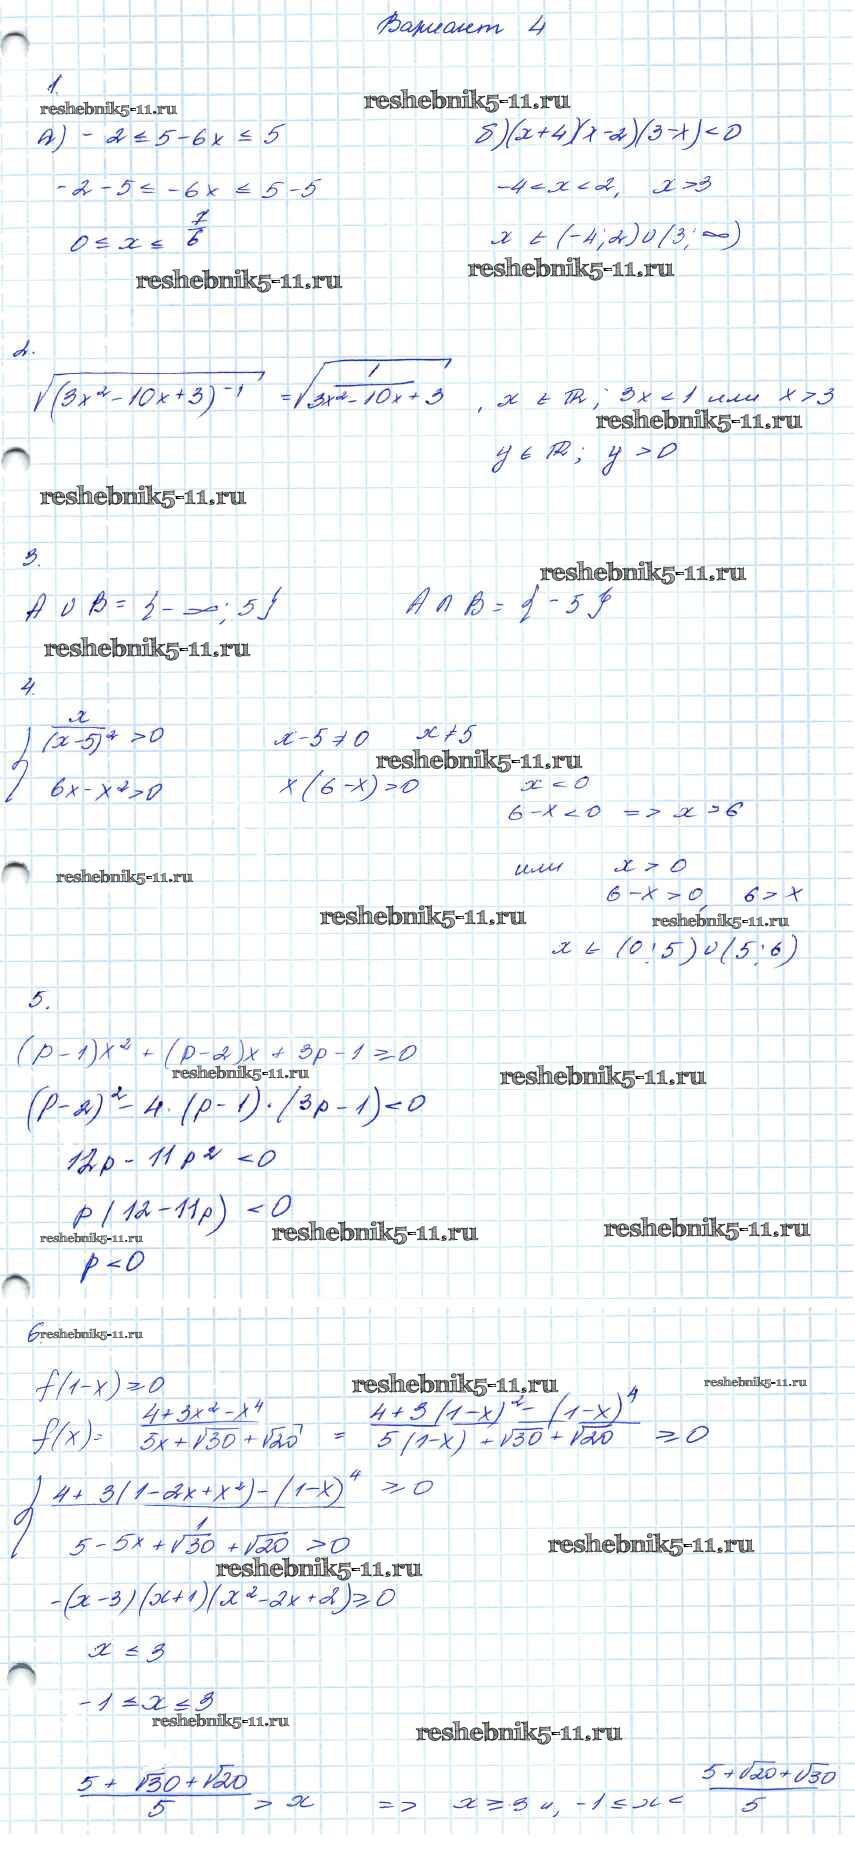 Вариант 4
1.
reshebnik5-11.ru reshebnik5-11.ru
а) -2 ≤ 5-6x ≤ 5 б) (x+4)(x-2)(3-x)<0
-2-5 ≤ -6x ≤ 5-5 -4<x<2, x>3
0 ≤ x ≤ 7/6 x ∈ (-4;2)∪(3;∞)
reshebnik5-11.ru reshebnik5-11.ru
2.
√((3x²-10x+3)⁻¹) = √(1/(3x²-10x+3)), x ∈ ℝ; 3x<1 или x>3
reshebnik5-11.ru
y ∈ ℝ; y>0
reshebnik5-11.ru
3.
reshebnik5-11.ru
A ∪ B = {-∞; 5} A ∩ B = {-5}
reshebnik5-11.ru
4.
{ x/(x-5)² >0 x-5≠0 x≠5
reshebnik5-11.ru
6x-x²>0 x(6-x)>0 x<0
6-x<0 => x>6
или x>0
reshebnik5-11.ru
6-x>0, 6>x
reshebnik5-11.ru reshebnik5-11.ru
x ∈ (0;5)∪(5;6)
5.
(p-1)x²+(p-2)x+3p-1≥0
reshebnik5-11.ru reshebnik5-11.ru
(p-2)²-4·(p-1)·(3p-1)<0
12p-11p²<0
p(12-11p)<0
reshebnik5-11.ru reshebnik5-11.ru reshebnik5-11.ru
p<0
6. reshebnik5-11.ru
f(1-x)≥0
reshebnik5-11.ru reshebnik5-11.ru
f(x)= (4+3x²-x⁴)/(5x+√30+√20) = (4+3(1-x)²-(1-x)⁴)/(5(1-x)+√30+√20) ≥0
{ 4+3(1-2x+x²)-(1-x)⁴ / 1 ≥0
5-5x+√30+√20>0
reshebnik5-11.ru
reshebnik5-11.ru
-(x-3)(x+1)(x²-2x+2)≥0
x ≤ 3
-1 ≤ x ≤ 3
reshebnik5-11.ru reshebnik5-11.ru
(5+√30+√20)/5 > x => x ≥ 3 и, -1 ≤ x < (5+√20+√30)/5